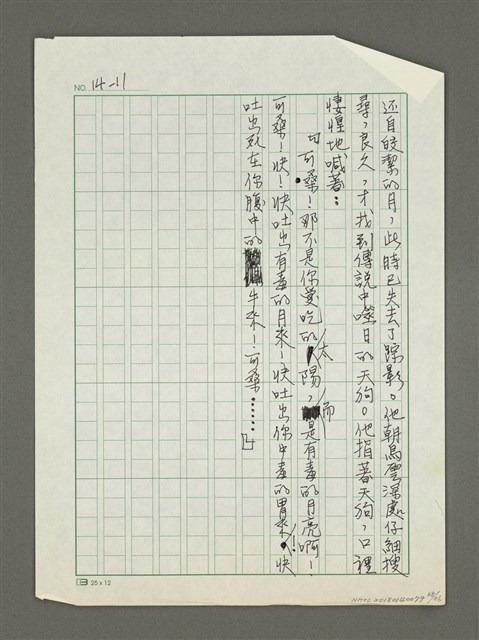 NO. 14-11
还自皎潔的月，此時已失去了踪影。他朝烏雲深處仔細搜
尋，良久，才找到傳說中噬日的天狗。他指著天狗，口裡
悽惶地喊著：
「可桑！那不是你愛吃的太陽，而是有毒的月亮啊！
可桑！快！快吐出有毒的月來！快吐出你中毒的胃來！快
吐出死在你腹中的牛來！可桑……」
25 x 12